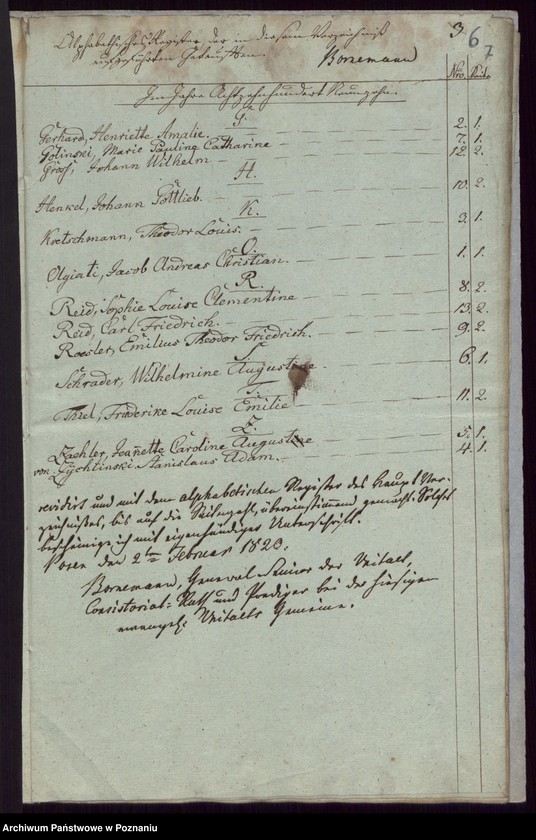 3. 6
7
Alphabethisches Register der in diesem Verzeichniß
aufgeführten Getauften. Bornemann
Nro. Seite
Im Jahre Achtzehnhundert Neunzehn.
G.
Gerhard, Henriette Amalie. 2. 1.
Golinski, Marie Pauline Catharine 7. 1.
Gross, Johann Wilhelm 12. 2.
H.
Henkel, Johann Gottlieb. 10. 2.
K.
Kretschmann, Theodor Louis. 3. 1.
O.
Olgiati, Jacob Andreas Christian. 1. 1.
R.
Reid, Sophie Louise Clementine 8. 2.
Reid, Carl Friedrich. 13. 2.
Roesler, Emilius Theodor Friedrich. 9. 2.
S.
Schrader, Wilhelmine Augustine. 6. 1.
T.
Thiel, Friderike Louise Emilie 11. 2.
Z.
Zaehler, Jeannette Caroline Augustine 5. 1.
von Zychlinski Stanislaus Adam. 4. 1.
revidirt und mit dem alphabetischen Register des Haupt Ver-
zeichnißes, bis auf die Seitenzahl, übereinstimmend gemacht. Solches
bescheinige ich mit eigenhändiger Unterschrift.
Posen den 2ten Februar 1820.
Bornemann, General Senior der Unitaet,
Consistorial-Rath und Prediger bei der hiesigen
evangel. Unitaets Gemeine.
Archiwum Państwowe w Poznaniu